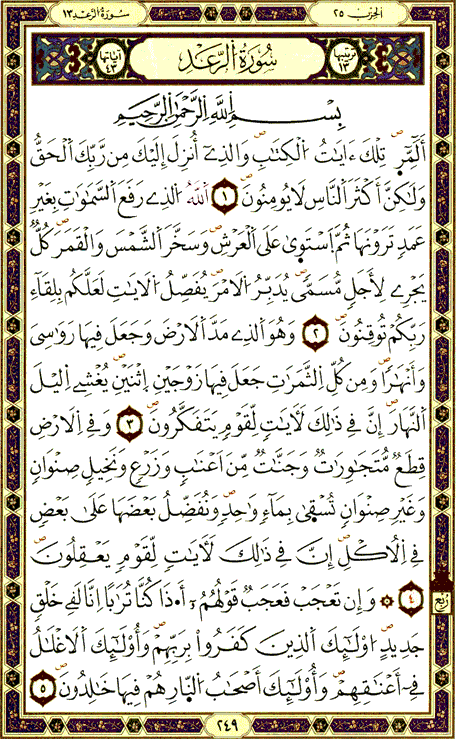 الحزب ٢٥
سورة الرعد ١٣
ترتيبها ١٣
سُورَةُ الرَّعْدِ
آياتها ٤٣
بِسْمِ اللَّهِ الرَّحْمَٰنِ الرَّحِيمِ
أَلَٓمِّٓرۖ تِلْكَ ءَايَٰتُ اُ۬لْكِتَٰبِۖ وَالذِےٓ أُنزِلَ إِلَيْكَ مِن رَّبِّكَ اَ۬لْحَقُّ
وَلَٰكِنَّ أَكْثَرَ اَ۬لنَّاسِ لَا يُومِنُونَۖ ١ اَ۬للَّهُ اُ۬لذِے رَفَعَ اَ۬لسَّمَٰوَٰتِ بِغَيْرِ
عَمَدٖ تَرَوْنَهَاۖ ثُمَّ اَ۪سْتَو۪يٰ عَلَى اَ۬لْعَرْشِۖ وَسَخَّرَ اَ۬لشَّمْسَ وَالْقَمَرَۖ كُلّٞ
يَجْرِے لِأَجَلٖ مُّسَمّيٗۖ يُدَبِّرُ اُ۬لَامْرَۖ يُفَصِّلُ اُ۬لَايَٰتِ لَعَلَّكُم بِلِقَآءِ
رَبِّكُمْ تُوقِنُونَۖ ٢ وَهُوَ اَ۬لذِے مَدَّ اَ۬لَارْضَ وَجَعَلَ فِيهَا رَوَٰسِيَ
وَأَنْهَٰراٗۖ وَمِن كُلِّ اِ۬لثَّمَرَٰتِ جَعَلَ فِيهَا زَوْجَيْنِ اِ۪ثْنَيْنِۖ يُغْشِے اِ۬ليْلَ
اَ۬لنَّهَارَۖ إِنَّ فِے ذَٰلِكَ لَأٓيَٰتٖ لِّقَوْمٖ يَتَفَكَّرُونَۖ ٣ وَفِے اِ۬لَارْضِ
قِطَعٞ مُّتَجَٰوِرَٰتٞ وَجَنَّٰتٞ مِّنَ اَعْنَٰبٖ وَزَرْعٖ وَنَخِيلٖ صِنْوَانٖ
وَغَيْرِ صِنْوَانٖ تُسْق۪يٰ بِمَآءٖ وَٰحِدٖۖ وَنُفَضِّلُ بَعْضَهَا عَلَىٰ بَعْضٖ
فِے اِ۬لُاكْلِۖ إِنَّ فِے ذَٰلِكَ لَأٓيَٰتٖ لِّقَوْمٖ يَعْقِلُونَۖ
٤ ۞ وَإِن تَعْجَبْ فَعَجَبٞ قَوْلُهُمُۥٓ أَ۟ذَا كُنَّا تُرَٰباً اِنَّا لَفِے خَلْقٖ
ربع
جَدِيدٍۖ اُوْلَٰٓئِكَ اَ۬لذِينَ كَفَرُواْ بِرَبِّهِمْۖ وَأُوْلَٰٓئِكَ اَ۬لَاغْلَٰلُ
فِےٓ أَعْنَاقِهِمْۖ وَأُوْلَٰٓئِكَ أَصْحَٰبُ اُ۬لنّ۪ارِ هُمْ فِيهَا خَٰلِدُونَۖ ٥
٢٤٩